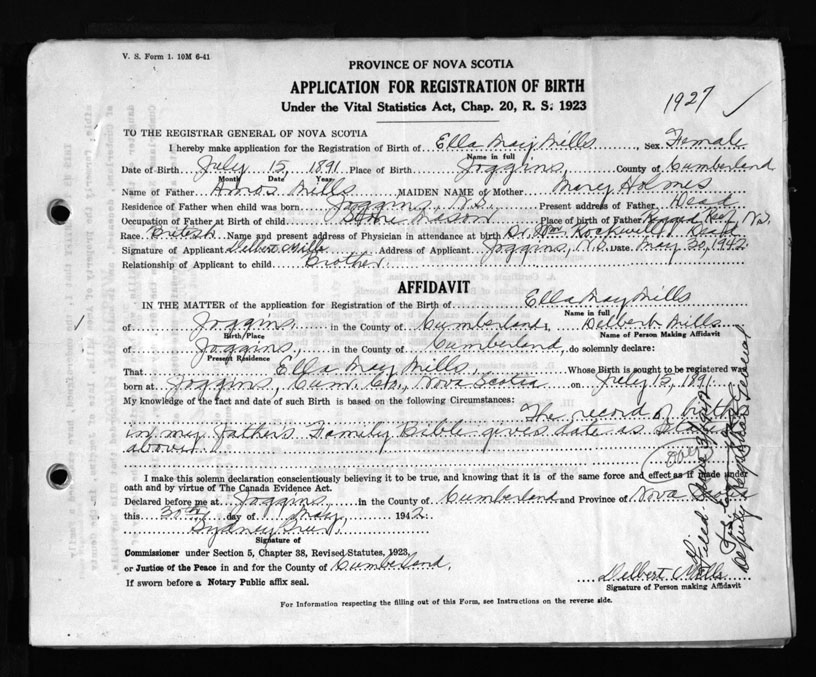 V. S. Form 1. 10M 6-41
PROVINCE OF NOVA SCOTIA
APPLICATION FOR REGISTRATION OF BIRTH
Under the Vital Statistics Act, Chap. 20, R. S. 1923
1927 ✓
TO THE REGISTRAR GENERAL OF NOVA SCOTIA
I hereby make application for the Registration of Birth of Ella May Mills, Sex Female
Name in full
Date of Birth July 15, 1891 Place of Birth Joggins, County of Cumberland
Month Date Year
Name of Father Amos Mills MAIDEN NAME of Mother Mary Holmes
Residence of Father when child was born Joggins, N.S. Present address of Father Dead
Occupation of Father at Birth of child Stone Mason Place of birth of Father N.S.
Race British Name and present address of Physician in attendance at birth Dr. Wm Rockwell Dead
Signature of Applicant Delbert Mills Address of Applicant Joggins, N.S. Date May 30, 1942
Relationship of Applicant to child Brother
AFFIDAVIT
IN THE MATTER of the application for Registration of the Birth of Ella May Mills
Name in full
of Joggins in the County of Cumberland I, Delbert Mills
Birth/Place Name of Person Making Affidavit
of Joggins, in the County of Cumberland, do solemnly declare:
Present Residence
That Ella May Mills, Whose Birth is sought to be registered was
born at Joggins, Cum. Co., Nova Scotia on July 15, 1891
My knowledge of the fact and date of such Birth is based on the following Circumstances:
The record of birth
in my Fathers Family Bible gives date as stated
above.
I make this solemn declaration conscientiously believing it to be true, and knowing that it is of the same force and effect as if made under
oath and by virtue of The Canada Evidence Act.
Declared before me at Joggins in the County of Cumberland and Province of Nova Scotia
this 30th day of May, 1942.
Signature of
Commissioner under Section 5, Chapter 38, Revised Statutes, 1923
or Justice of the Peace in and for the County of Cumberland.
If sworn before a Notary Public affix seal.
Delbert Mills
Signature of Person making Affidavit
For Information respecting the filling out of this Form, see Instructions on the reverse side.
Filed June
Deputy Registrar General